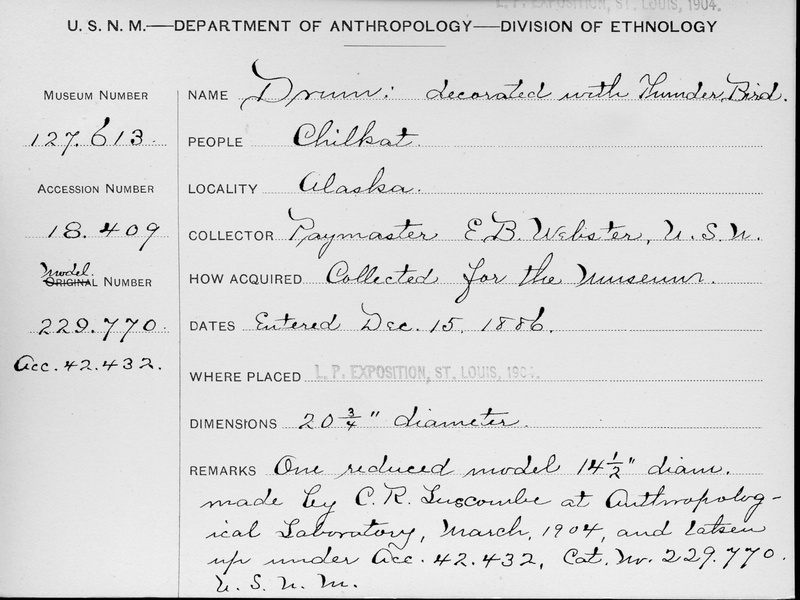 L. P. EXPOSITION, ST. LOUIS, 1904.
U. S. N. M.—DEPARTMENT OF ANTHROPOLOGY—DIVISION OF ETHNOLOGY
MUSEUM NUMBER
127.613.
ACCESSION NUMBER
18.409
Model.
ORIGINAL NUMBER
229.770.
Acc. 42.432.
NAME Drum: decorated with Thunder Bird.
PEOPLE Chilkat.
LOCALITY Alaska.
COLLECTOR Paymaster E. B. Webster, U. S. N.
HOW ACQUIRED Collected for the Museum.
DATES Entered Dec. 15, 1886.
WHERE PLACED L. P. EXPOSITION, ST. LOUIS, 1904.
DIMENSIONS 20 3/4" diameter.
REMARKS One reduced model 14 1/2" diam.
made by C. R. Luscombe at Anthropolog-
ical Laboratory, March, 1904, and taken
up under Acc. 42.432, Cat. No. 229.770.
U. S. N. M.